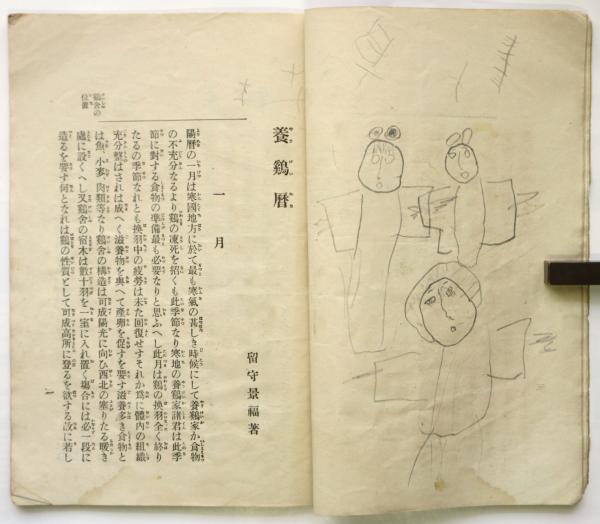 養鷄暦
留守景福著
一月
陽暦の一月は寒國地方に於て最も寒氣の甚しき時候にして養鷄家か食物
の不充分なるより鷄の凍死を招くも此季節なり寒地の養鷄家諸君は此季
節に對する食物の準備最も必要なりと思ふへし此月は鷄の換羽全く終り
たるの季節なれとも換羽中の疲勞は未た回復せすそれか爲に體内の組織
充分整はされは成へく滋養物を與へて產卵を促すを要す滋養多き食物と
は魚、小麥、肉類等なり鷄舍の構造は可成陽光に向ひ西北の塞りたる暖き
處に設くへし又鷄舍の宿木は數十羽を一室に入れ置く場合には必一段に
造るを要す何となれは鷄の性質として可成高所に登るを欲する故に若し
鷄舍の
位置
一